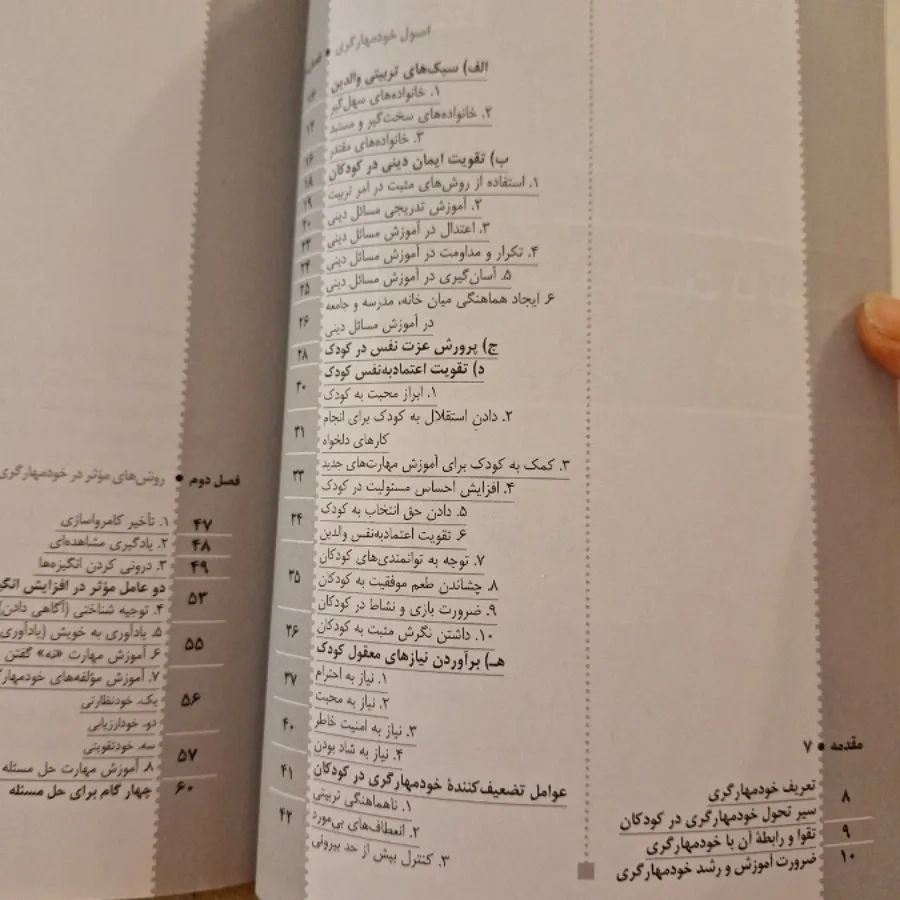 مقدمه • ۷
تعریف خودمهارگری
۸
سیر تحول خودمهارگری در کودکان
تقوا و رابطهٔ آن با خودمهارگری
۹
ضرورت آموزش و رشد خودمهارگری
۱۰
اصول خودمهارگری •
الف) سبک‌های تربیتی والدین
۱. خانواده‌های سهل‌گیر
۲. خانواده‌های سخت‌گیر و مستبد
۱۴
۳. خانواده‌های مقتدر
ب) تقویت ایمان دینی در کودکان
۱۶
۱. استفاده از روش‌های مثبت در امر تربیت
۱۸
۲. آموزش تدریجی مسائل دینی
۱۹
۳. اعتدال در آموزش مسائل دینی
۲۰
۴. تکرار و مداومت در آموزش مسائل دینی
۲۳
۵. آسان‌گیری در آموزش مسائل دینی
۲۴
۶. ایجاد هماهنگی میان خانه، مدرسه و جامعه
۲۵
در آموزش مسائل دینی
۲۶
ج) پرورش عزت نفس در کودک
۲۸
د) تقویت اعتمادبه‌نفس کودک
۳۰
۱. ابراز محبت به کودک
۲. دادن استقلال به کودک برای انجام
کارهای دلخواه
۳۱
۳. کمک به کودک برای آموزش مهارت‌های جدید
۳۳
۴. افزایش احساس مسئولیت در کودک
۵. دادن حق انتخاب به کودک
۳۴
۶. تقویت اعتمادبه‌نفس والدین
۷. توجه به توانمندی‌های کودکان
۸. چشاندن طعم موفقیت به کودکان
۳۵
۹. ضرورت بازی و نشاط در کودکان
۱۰. داشتن نگرش مثبت به کودکان
۳۶
هـ) برآوردن نیازهای معقول کودک
۱. نیاز به احترام
۳۷
۲. نیاز به محبت
۳. نیاز به امنیت خاطر
۴۰
۴. نیاز به شاد بودن
عوامل تضعیف‌کنندهٔ خودمهارگری در کودکان
۴۱
۱. ناهماهنگی تربیتی
۲. انعطاف‌های بی‌مورد
۴۲
۳. کنترل بیش از حد بیرونی
فصل دوم • روش‌های مؤثر در خودمهارگری
۱. تأخیر کامرواسازی
۴۷
۲. یادگیری مشاهده‌ای
۴۸
۳. درونی کردن انگیزه‌ها
۴۹
دو عامل مؤثر در افزایش
۵۳
۴. توجیه شناختی (آگاهی دادن)
۵. یادآوری به خویش (یادآوری
۵۵
۶. آموزش مهارت «نه» گفتن
۷. آموزش مؤلفه‌های
یک. خودنظارتی
۵۶
دو. خودارزیابی
سه. خودتقویتی
۵۷
۸. آموزش مهارت حل مسئله
چهار گام برای حل مسئله
۶۰